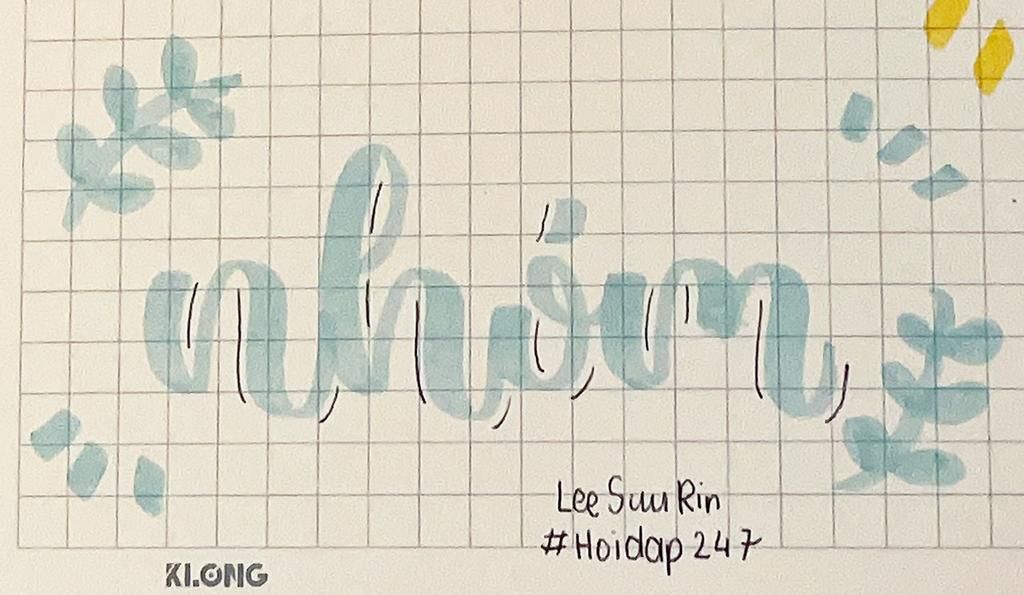 nhóm
Lee Suu Rin
#Hoidap247
KLONG